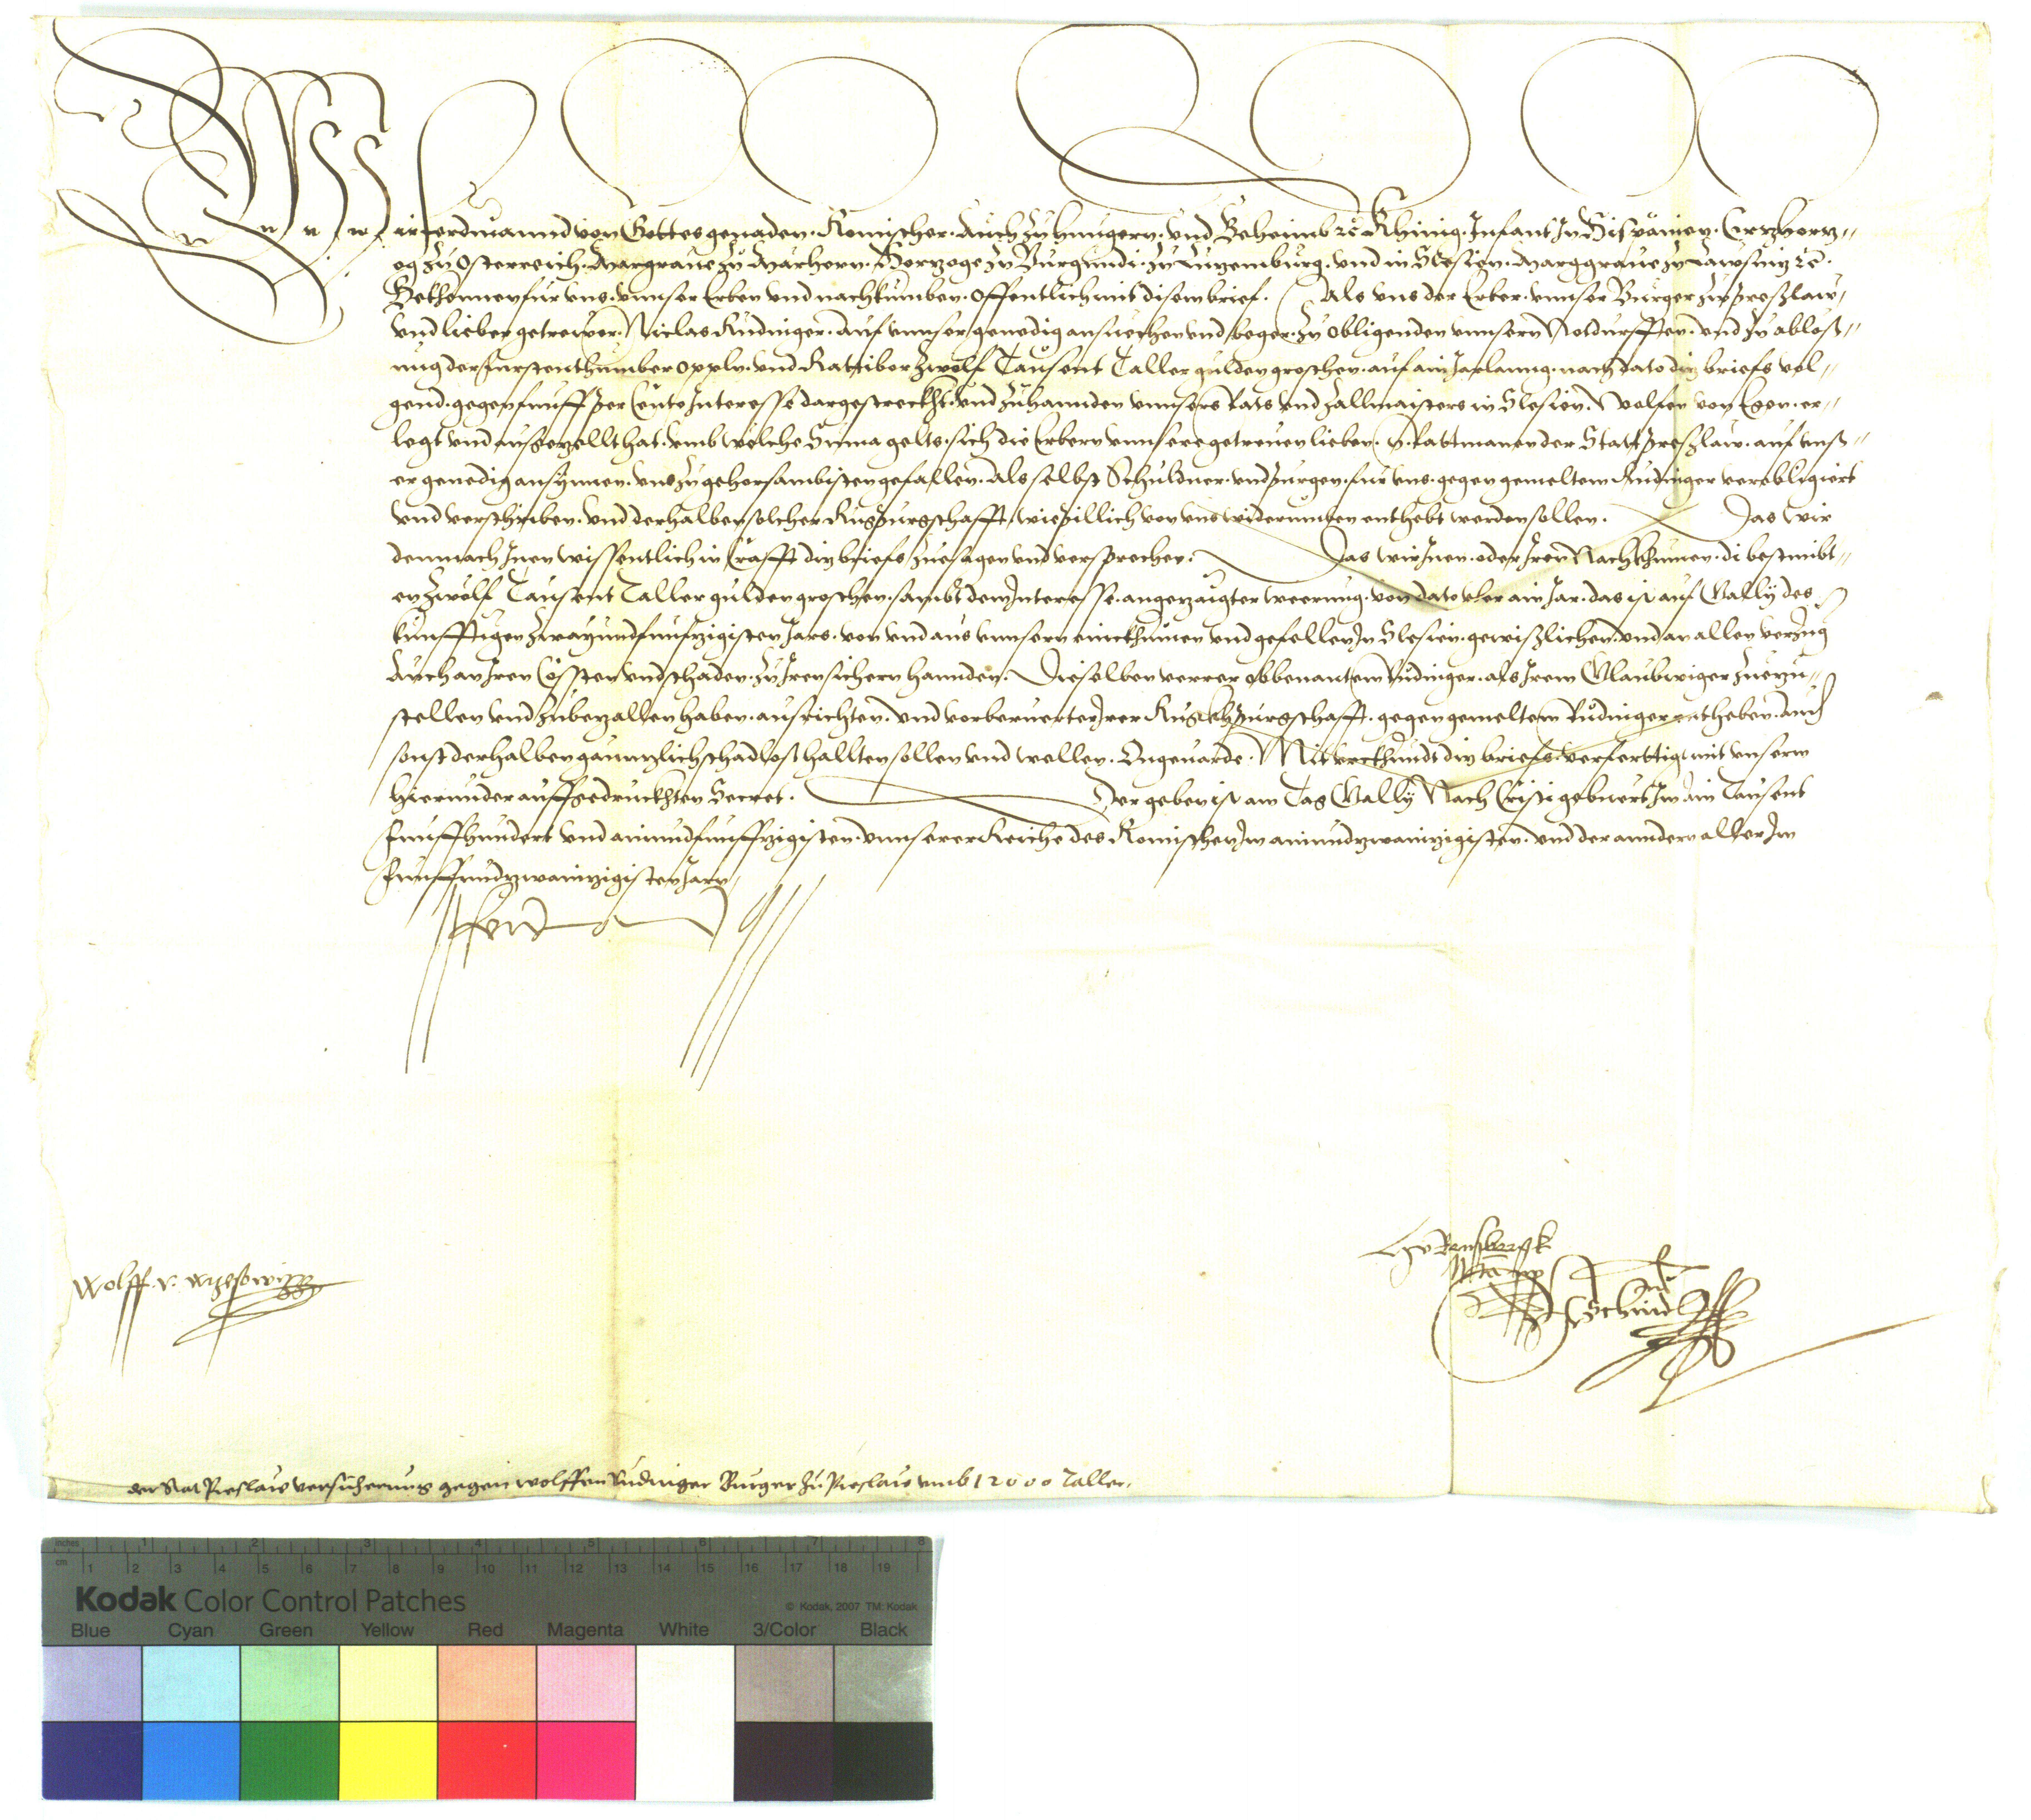 Wir Ferdinannd von Gottes genaden. Romischer. Auch zu Hungern. und Beheimb &c. Khünig. Infant in Hispanien. Ertzhertz-
og zu Osterreich. Marggraue zu Märhern. Hertzoge zu Burgundi. zu Lutzemburg. und in Slesien. Marggraue zu Lawsnitz &c.
Bekhennen für uns. unnser Erben und nachkumben. offentlich mit disem brief. Als uns der Erber. unnser Burger zu Presslaw,
und lieber getrewer. Niclas Rüdinger. auf unnser genedig ansuechen und beger. zu obligenden unnsern Notdurfften. und zu ablös-
ung der furstenthumber Oppln. und Rattibor Zwölf Tausent Taller guldengroschen. auf ain Jarlanng. nach dato ditz briefs vol-
gend. gegen funff per Cento Interesse dargestreckht. und zu hannden unnsers Rats und Zallmaisters in Slesien. Wolfen von Egen. er-
legt und ausgezellt hat. umb wölche Suma gelts. sich die Erbern unnsere getreuen lieben. N. Rattmanen der Statt Presslaw. auf unns-
er genedig ansynnen. uns zu gehorsambisten gefallen. als selbst Schuldner. und purgen. fur uns. gegen gemeltem Rudinger verobligiert
und verschriben. und derhalben solcher Rugpurgschafft, wie pillich von uns widerumben enthebt werden sollen. Das wir
demnach Inen wissentlich in Crafft ditz briefs zuesagen und versprechen. Das wir Inen. oder Iren Nachkhumen. di bestimbt-
en Zwölf Tausent Taller guldengroschen. sambt dem Interesse. angezaigter weerung. von dato uber ain Jar. das ist auf Gally des
kunfftigen zwayundfunfzigisten Jars. von und aus unnsern einckhumen und gefellen In Slesien. gewisslichen. und an allen verzug
Auch an Iren Cossten und schaden. zu Iren sichern hannden. Dieselben verrer obbenantem Rüdinger. als Irem Glaubwiger zuezu-
stellen und zubezallen haben. ausrichten. und vorberuerter Irer Rugkhpurgschafft. gegen gemeltem Rüdinger entheben. Auch
sonst derhalben gänntzlich schadlos hallten sollen und wellen. Ongeuarde. Mit urckhundt ditz briefs. verferttigt mit unserm
hierunder auffgedruckhten Secret. Der geben ist am Tag Gally Nach Cristi gebuert Im ain Tausent
Funffhundert und ainundfunffzigisten. unnserer Reiche des Romischen Im ainundzwaintzigisten. und der anndern aller Im
Funffundzwaintzigisten Jarn,
Ferdinand
Wolff. v. Wrzesowitz
Schündl
der Stat Preslaw versicherung gegen Wolffen Rudinger Burger zu Preslaw umb 12000 Taller.
inches 1 2 3 4 5 6 7 8
cm 1 2 3 4 5 6 7 8 9 10 11 12 13 14 15 16 17 18 19
Kodak Color Control Patches © Kodak, 2007 TM: Kodak
Blue Cyan Green Yellow Red Magenta White 3/Color Black